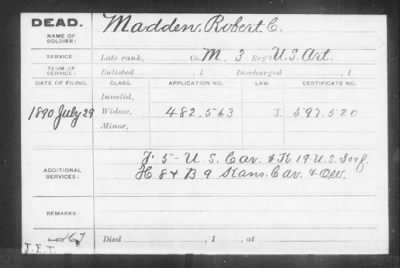 DEAD.
NAME OF SOLDIER:
Madden, Robert C.
SERVICE:
Late rank, Co. M, 3 Reg't U.S. Art.
TERM OF SERVICE:
Enlisted , 1 Discharged , 1
DATE OF FILING.
CLASS.
APPLICATION NO.
LAW.
CERTIFICATE NO.
Invalid,
1890 July 29
Widow,
482,563
J.
597,520
Minor,
ADDITIONAL SERVICES:
F. 5 - U.S. Cav. & K 19 U.S. Inf.
H 8 & B 9 Kans. Cav. &
REMARKS:
Died , 1 , at